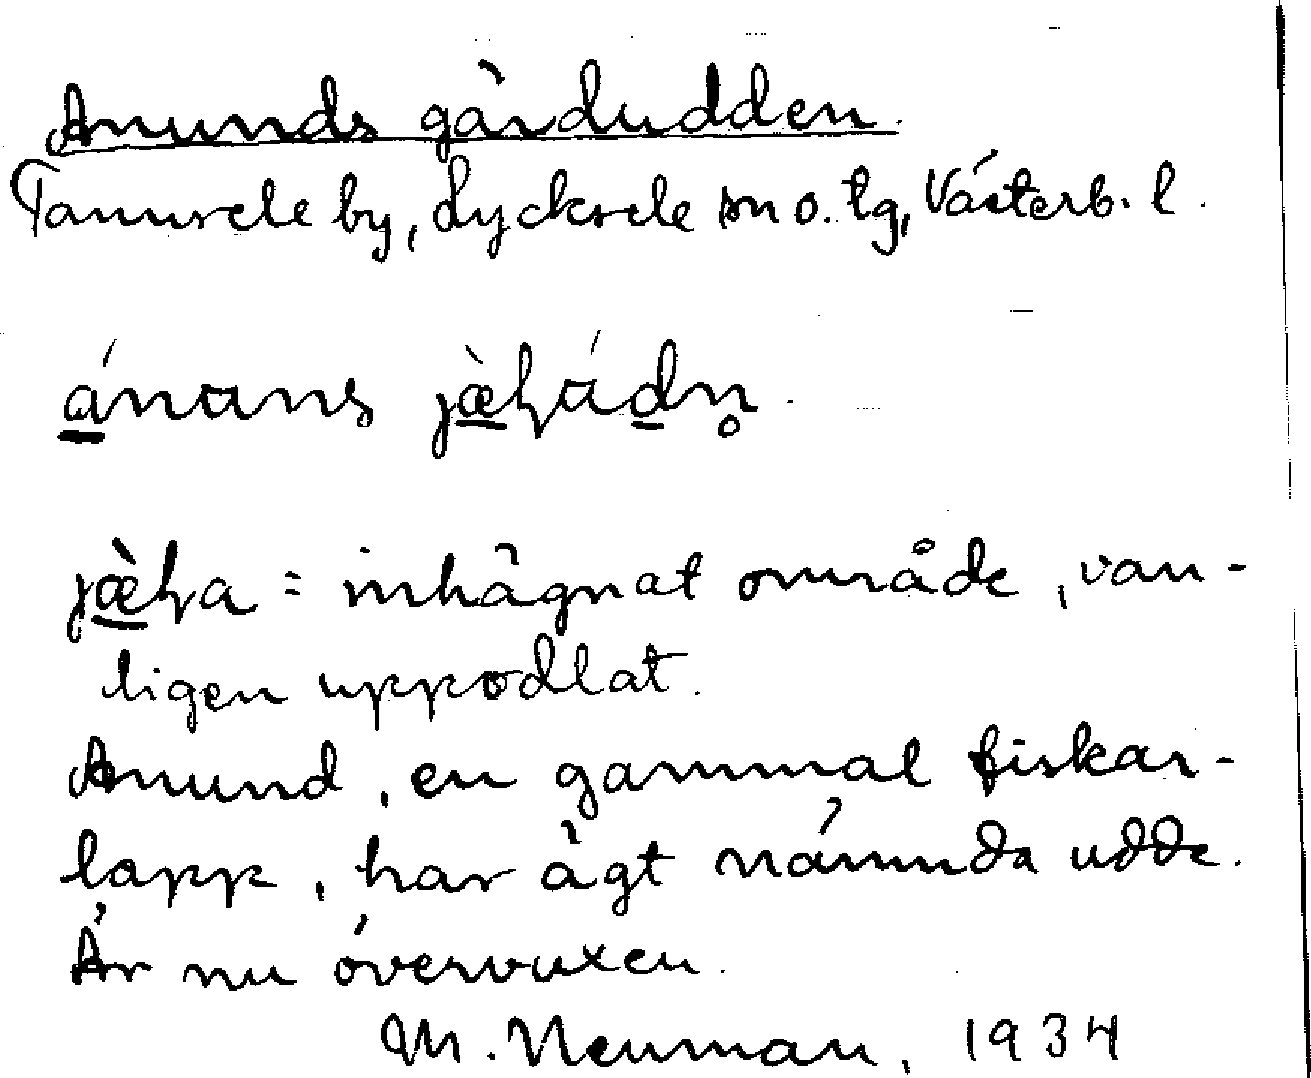 Anunds gärdudden.
Tannsele by, Lycksele sn o. tg, Västerb. l.
ánɑns jæ̀ɧɑ́dn̥.
jæ̀ɧa = inhägnat område, van-
ligen uppodlat.
Anund, en gammal fiskar-
lapp, har ägt nämnda udde.
Är nu övervuxen.
M. Neuman, 1934